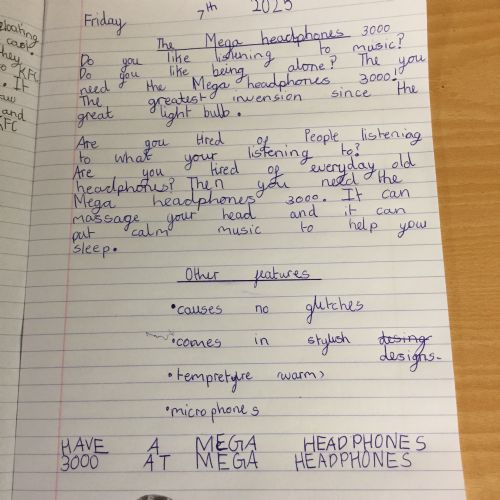 Friday 7th 2025
The Mega headphones 3000
Do you like listening to music?
Do you like being alone? The you
need the Mega headphones 3000!
The greatest invension since the
great light bulb.
Are you tired of People listening
to what your listening to?
Are you tired of everyday old
headphones? Then you need the
Mega headphones 3000. It can
massage your head and it can
put calm music to help you
sleep.
Other features
•causes no glitches
•comes in stylish desing
designs.
•tempretyre warm
•microphones
HAVE A MEGA HEADPHONES
3000 AT MEGA HEADPHONES
cool.
they
KFC
. It
and
KFC